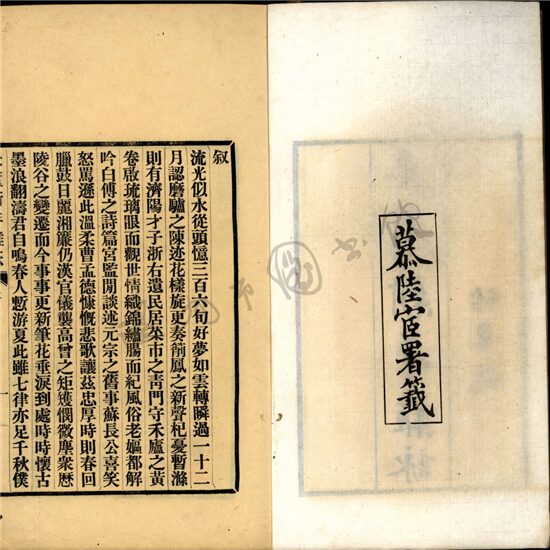 慕陸宦署籤
叙
流光似水從頭憶三百六旬好夢如雲轉瞬過一十二
月認磨驢之陳迹花樣旋更奏簫鳳之新聲杞憂暫滌
則有濟陽才子浙右遺民居菜市之靑門守禾廬之黃
卷啟琉璃眼而觀世情織錦繡腸而紀風俗老嫗都解
吟白傅之詩篇宮監閒談述元宗之舊事蘇長公喜笑
怒罵遜此溫柔曹孟德慷慨悲歌讓茲忠厚時則春回
臘鼓日麗湘簾仍漢官儀襲高曾之矩矱憫微塵衆歷
陵谷之變遷而今事事更新筆花垂淚到處時時懷古
墨浪翻濤君自鳴春人暫游夏此雖七律亦足千秋僕